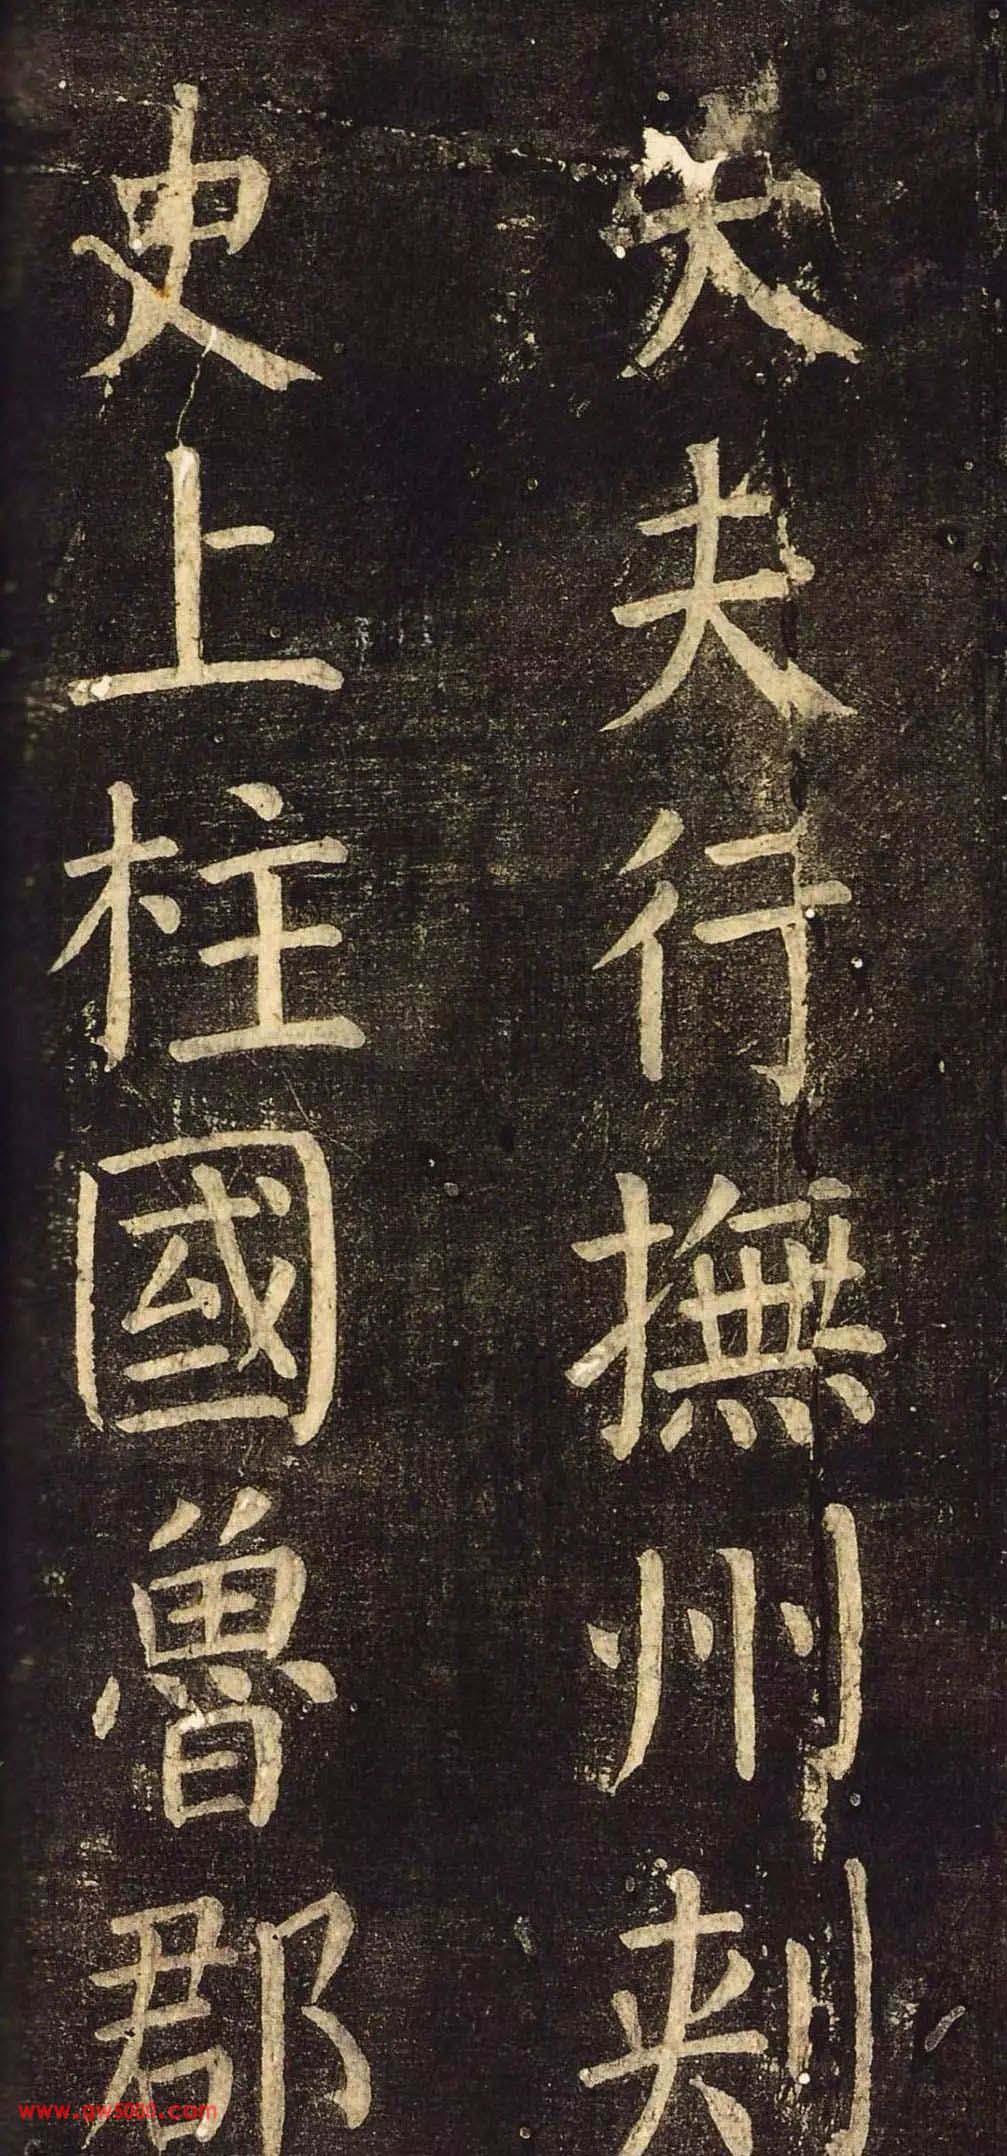 大夫行撫州刾
史上柱國魯郡
www.gw5000.com